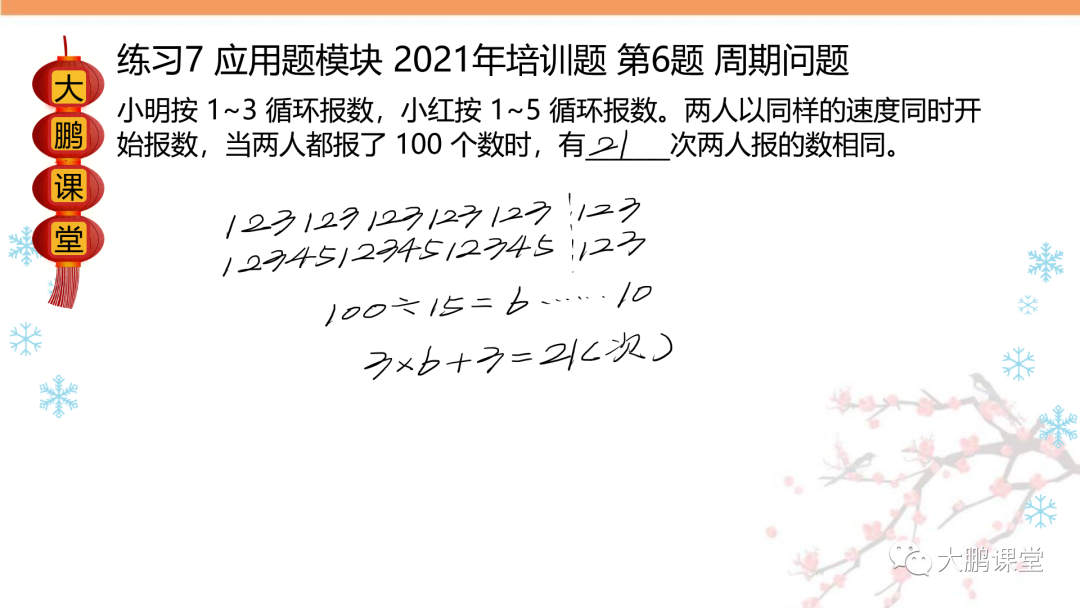 大鹏课堂
练习7 应用题模块 2021年培训题 第6题 周期问题
小明按 1~3 循环报数，小红按 1~5 循环报数。两人以同样的速度同时开
始报数，当两人都报了 100 个数时，有 21 次两人报的数相同。
123 123 123 123 123 123
12345 12345 12345 123
100÷15=6······10
3×6+3=21(次)
大鹏课堂